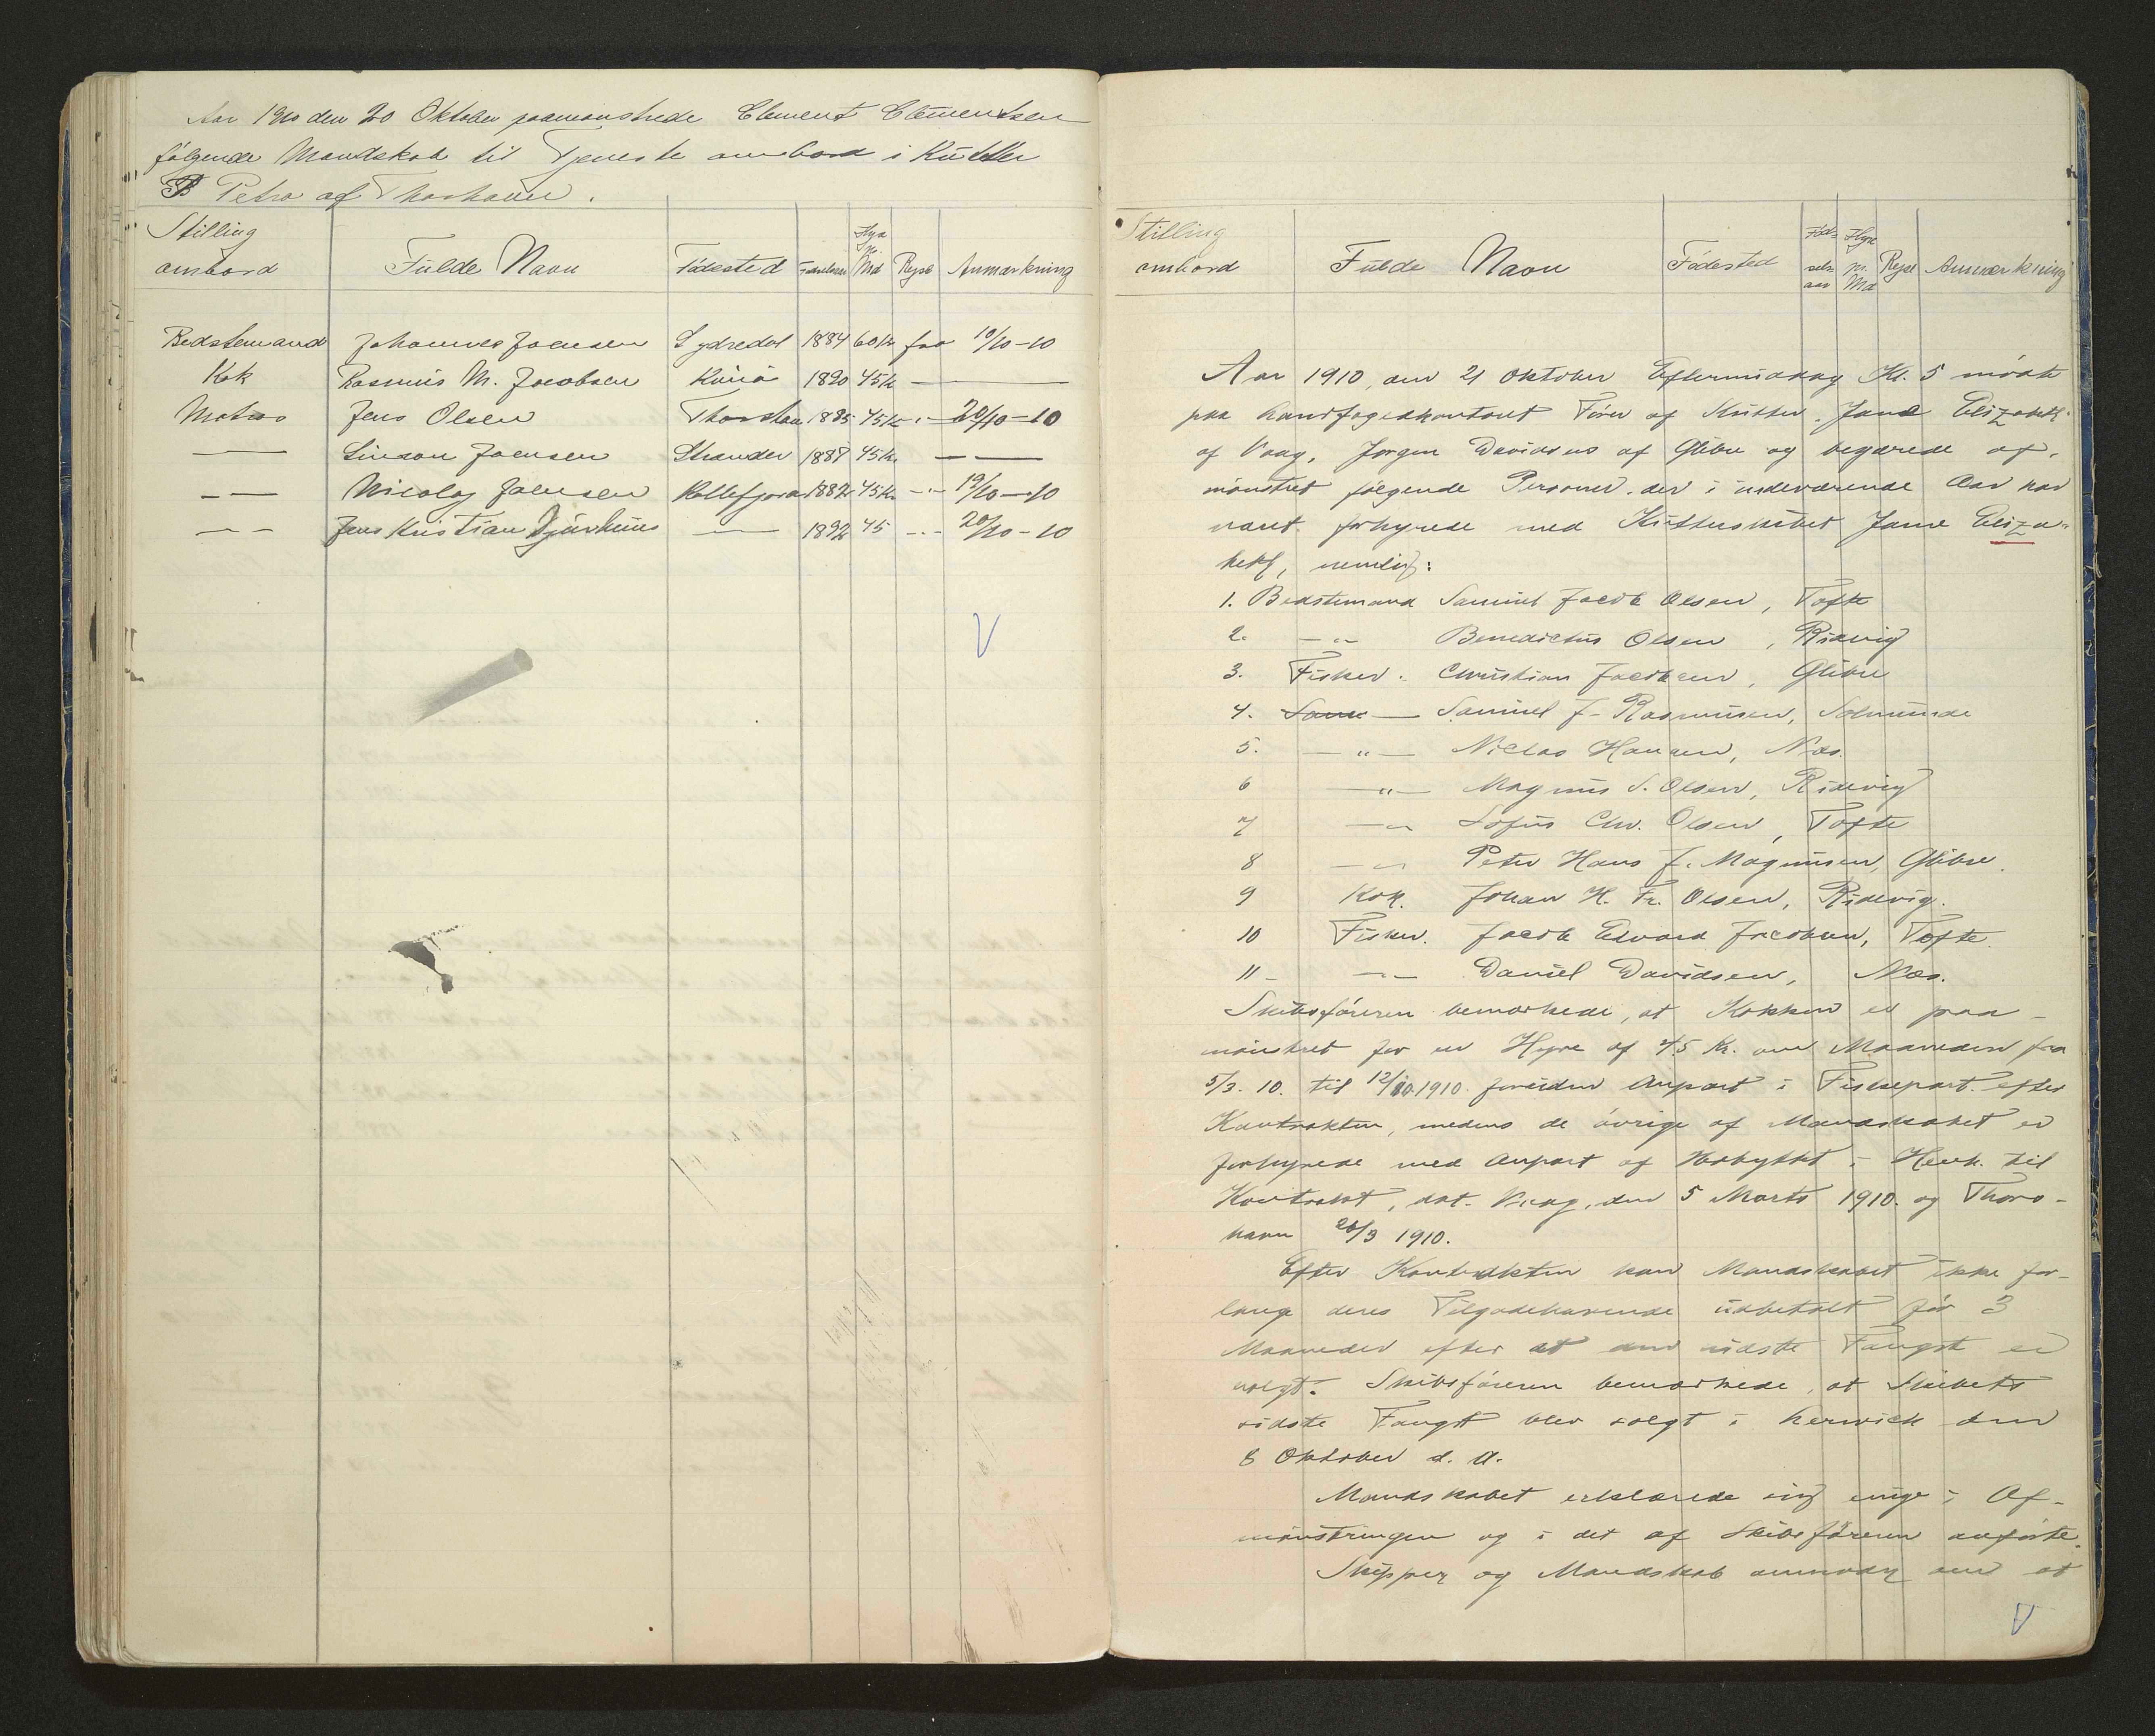 Aar 1910 den 20 Oktober paamønstrede Clement Clementsen
følgende Mandskab til Tjeneste ombord i Kutter
Petra af Thorshavn.
Stilling
ombord
Fulde Navn
Födested
Födselsaar
Hyre
pr.
Md
Rejse
Anmærkning
Bedstemand Johannes Joensen Sydredal 1884 60 Kr fra 19/10-10
Kok Rasmus M. Jacobsen Kunö 1890 45 Kr — —
Matros Jens Olsen Thorshavn 1885 45 Kr -"- 20/10-10
— Simon Joensen Strander 1887 45 Kr. — —
— — Nicolaj Joensen Kollefjord 1882 45 Kr. -"- 19/10-10
— — Jens Kristian Djurhuus — 1892 45 -"- 20/10-10
V
Stilling
ombord
Fulde Navn
Födested
Föd-
sels-
aar
Hyre
pr.
Md
Rejse
Anmærkning
Aar 1910, den 21 Oktober Eftermiddag Kl. 5 mödte
paa Landfogedkontoret Förer af Kutter Jane Elizabeth
af Vaag, Jørgen Davidsen af Glibre og begærede af-
mönstret følgende Personer, der i indeværende Aar har
været forhyrede med Kutterskibet Jane Eliza-
beth, nemlig:
1. Bedstemand Samuel Jacob Olsen, Tofte
2. — " Benedictus Olsen, Ridevig
3. Fisker. Christian Jacobsen, Glibre
4. Samme — Samuel J. Rasmussen, Solmunde
5. — " — Niclas Hansen, Næs.
6 — " — Magnus S. Olsen, Ridevig
7 — " Sofus Chr. Olsen, Tofte
8 — " Peter Hans J. Magnusen, Glibre.
9 Kok. Johan H. Fr. Olsen, Ridevig.
10 Fisker. Jacob Edvard Jacobsen, Tofte.
11 - — " — Daniel Davidsen, Næs.
Skibsföreren bemærkede, at Kokken er paa-
mönstret for en Hyre af 45 Kr. om Maaneden fra
5/3. 10. til 12/10.1910. foruden Anpart i Fiskepart. efter
Kontrakten, medens de övrige af Mandskabet er
forhyrede med Anpart af Udbyttet i Henh. til
Kontrakt, dat. Vaag, den 5 Marts 1910. og Thors-
havn 26/3 1910.
Efter Kontrakten kan Mandskabet ikke for-
lange deres Tilgodehavende udbetalt för 3
Maaneder efter at den sidste Fangst er
solgt. Skibsföreren bemærkede, at Skibets
sidste Fangst blev solgt i Lerwick den
8 Oktober d. A.
Mandskabet erklærede sig enige i Af-
mönstringen og i det af Skibsföreren anförte.
Skipper og Mandskab anmoder om at
V